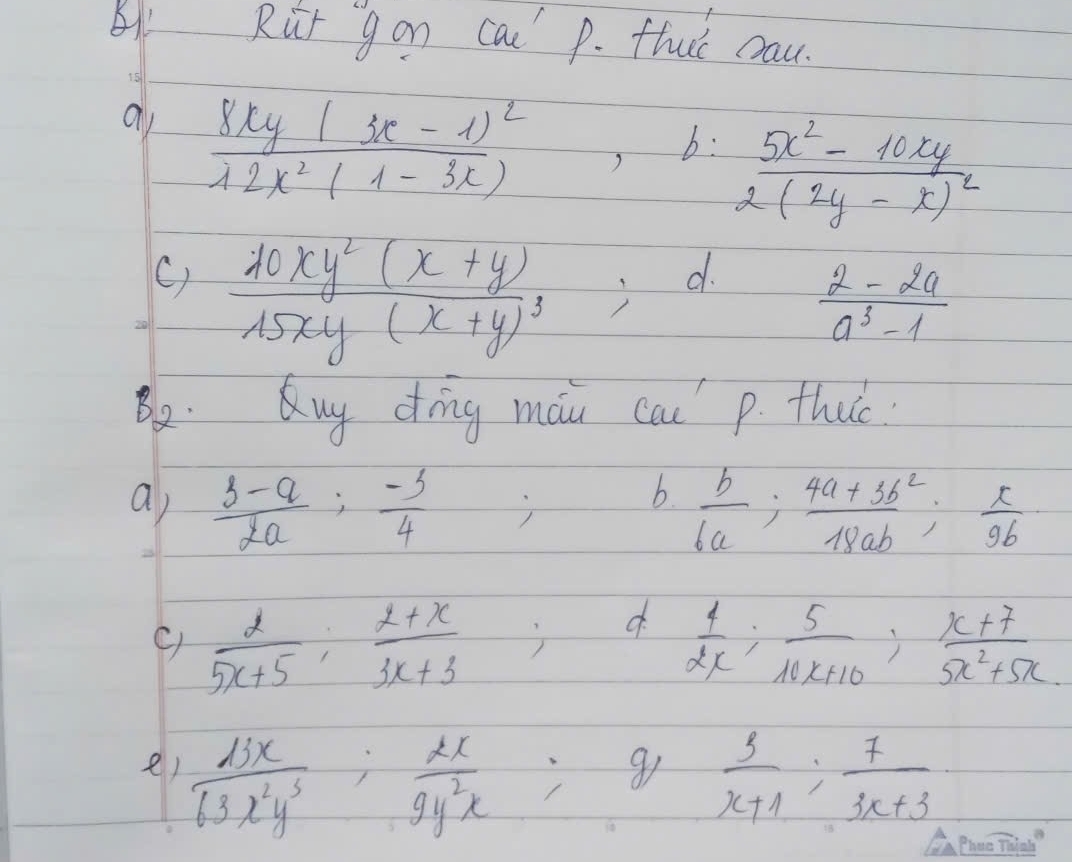 B1: Rút gọn các p. thức sau.
a, 8xy(3x-1)² / 12x²(1-3x) , b: 5x² - 10xy / 2(2y-x)²
c) 10xy²(x+y) / 15xy(x+y)³ ; d. 2-2a / a³-1
B2. Quy đồng mẫu các p. thức:
a) 3-a / 2a ; -3 / 4 ; b. b / 6a ; 4a+3b² / 18ab ; x / 9b
c) 2 / 5x+5 ; 2+x / 3x+3 ; d 1 / 2x ; 5 / 10x+10 ; x+7 / 5x²+5x.
e) 13x / 63x²y³ ; 2x / 9y²x ; g) 3 / x+1 ; 7 / 3x+3
Phuc Thinh